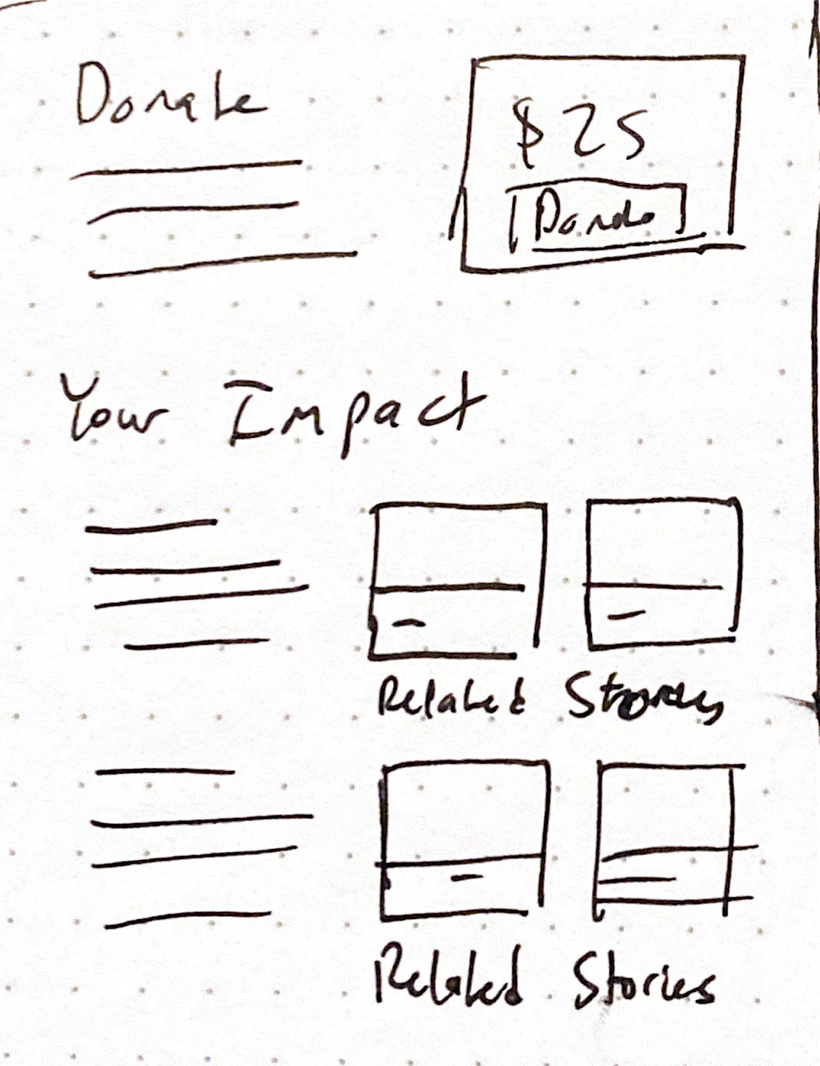 Donate
$25
Donate
Your Impact
Related Stories
Related Stories